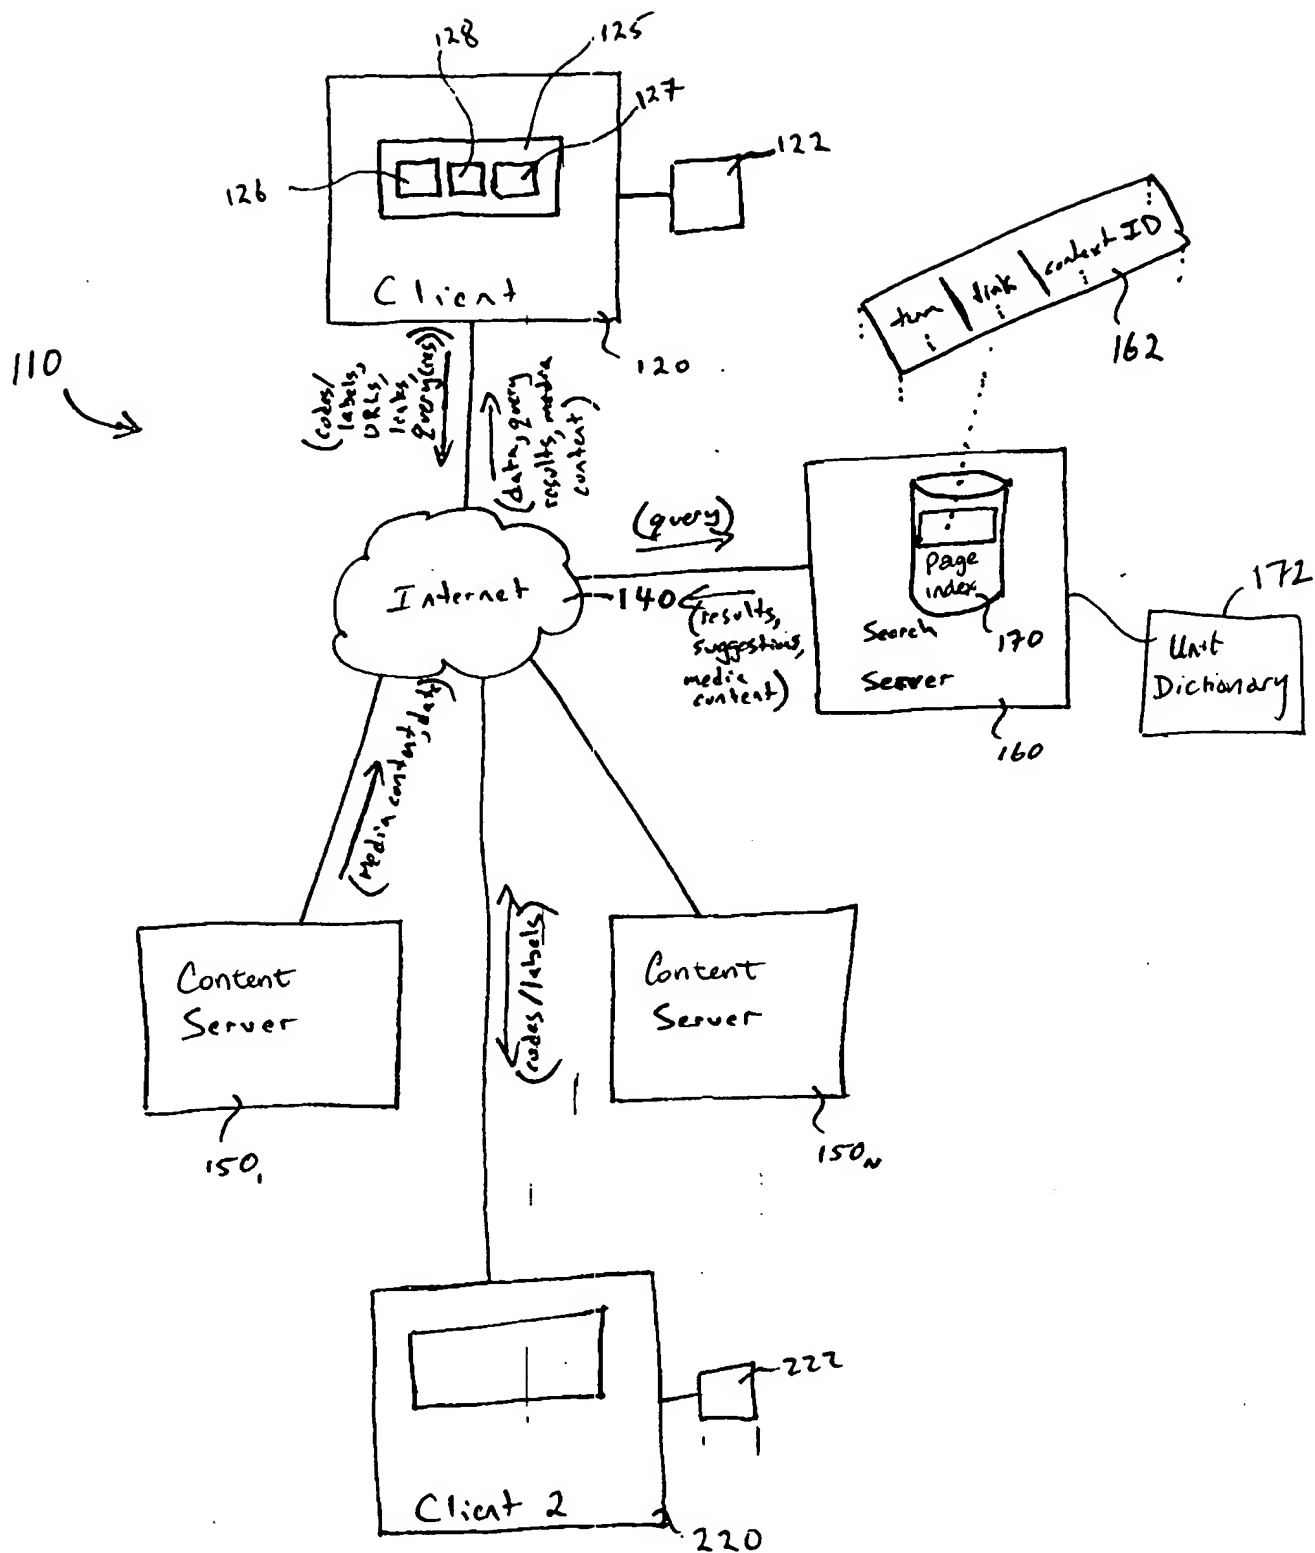 128
125
127
122
126
Client
120
110
(codes/
labels,
URLs,
links,
query(ies))
(data, query
results, media
content)
term
link
context ID
162
(query)
Internet
140
(results,
suggestions,
media
content)
Page
index
170
Search
Server
160
172
Unit
Dictionary
(Media content, data)
(codes/labels)
Content
Server
150₁
Content
Server
150N
222
Client 2
220